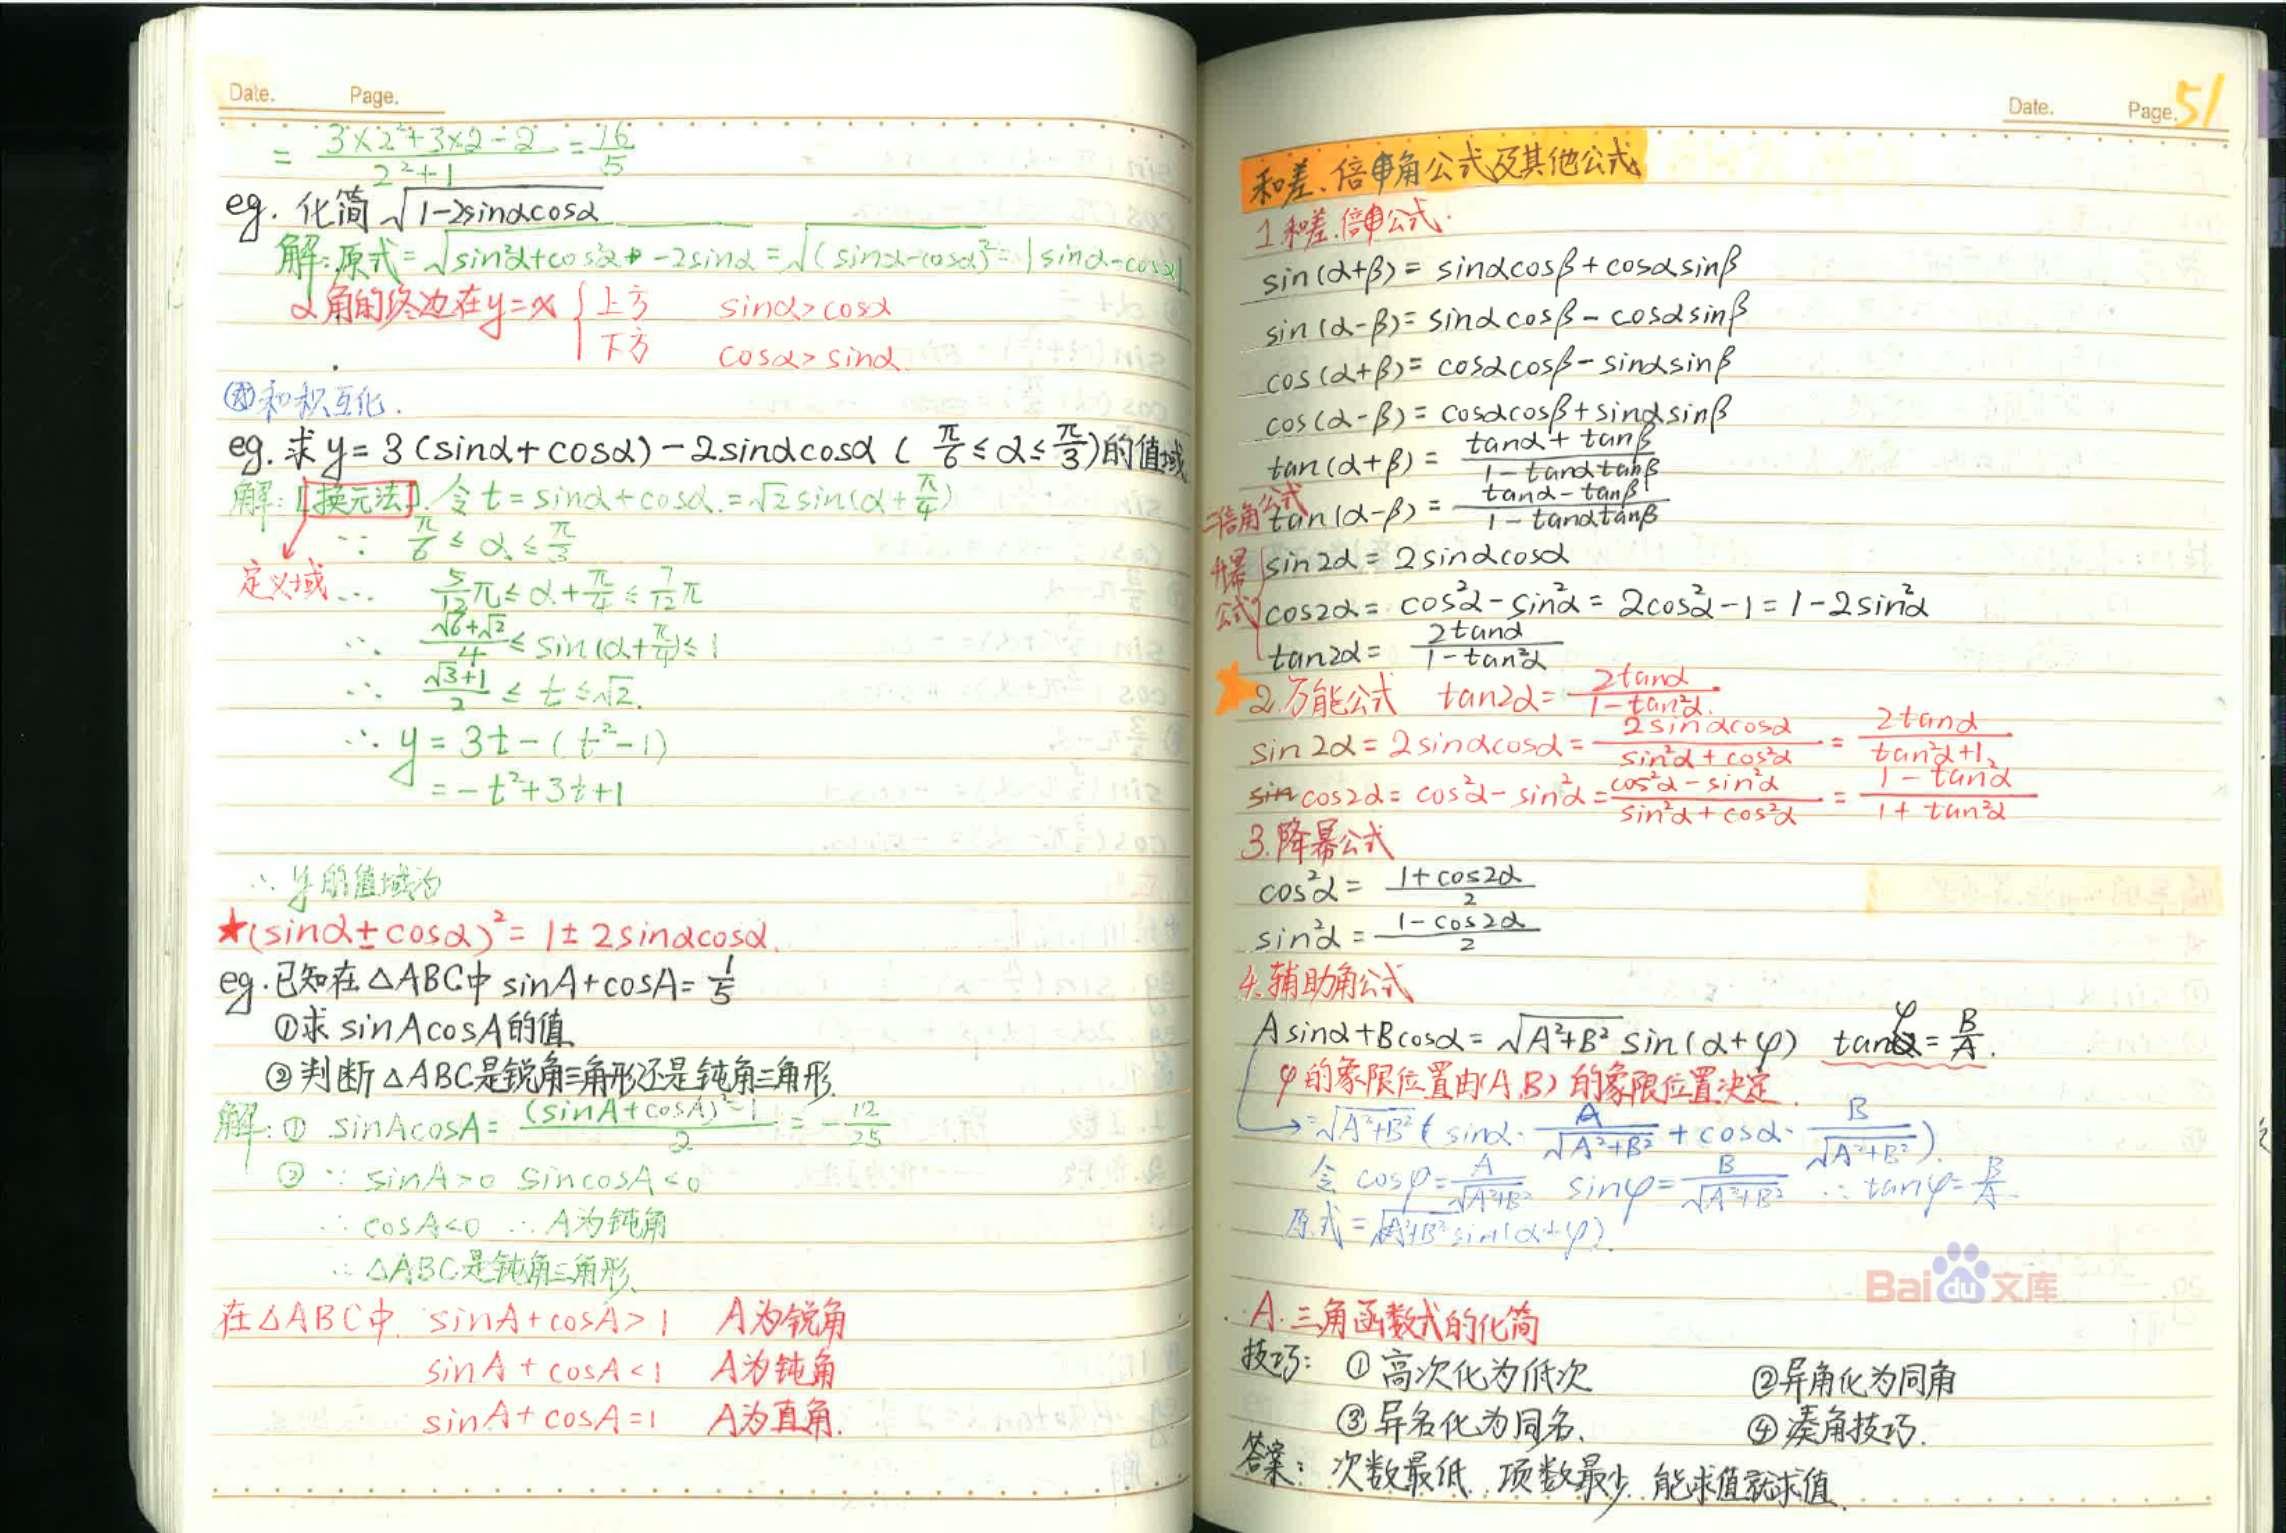 Date. Page.
= (3×2²+3×2-2)/(2²+1) = 16/5
eg. 化简 √(1-2sinαcosα)
解:原式=√(sin²α+cos²α -2sinα)=√((sinα-cosα)²)=|sinα-cosα|
α角的终边在y=x { 上方 sinα>cosα
下方 cosα>sinα
和积互化.
eg. 求 y=3(sinα+cosα)-2sinαcosα (π/6≤α≤π/3)的值域
解:[换元法]. 令 t=sinα+cosα.=√2sin(α+π/4)
∵ π/6≤α≤π/3
定义域 ∴ 5/12π≤α+π/4≤7/12π
∴ (√6+√2)/4≤sin(α+π/4)≤1
∴ (√3+1)/2≤t≤√2.
∴ y=3t-(t²-1)
=-t²+3t+1
∴ y的值域为
★(sinα±cosα)²=1±2sinαcosα.
eg.已知在△ABC中 sinA+cosA=1/5
①求 sinAcosA的值
②判断△ABC是锐角三角形还是钝角三角形.
解:① sinAcosA=((sinA+cosA)²-1)/2=-12/25
② ∵ sinA>0 sincosA<0
∴ cosA<0 ∴ A为钝角
∴ △ABC是钝角三角形.
在△ABC中. sinA+cosA>1 A为锐角
sinA+cosA<1 A为钝角
sinA+cosA=1 A为直角.
Date. Page. 51
和差、倍角公式及其他公式
1.和差.倍公式.
sin(α+β)=sinαcosβ+cosαsinβ
sin(α-β)=sinαcosβ-cosαsinβ
cos(α+β)=cosαcosβ-sinαsinβ
cos(α-β)=cosαcosβ+sinαsinβ
tan(α+β)=(tanα+tanβ)/(1-tanαtanβ)
tan(α-β)=(tanα-tanβ)/(1-tanαtanβ)
二倍角公式
升幂公式
sin2α=2sinαcosα
cos2α=cos²α-sin²α=2cos²α-1=1-2sin²α
tan2α=2tanα/(1-tan²α)
★2.万能公式 tan2α=2tanα/(1-tan²α).
sin2α=2sinαcosα=2sinαcosα/(sin²α+cos²α)=2tanα/(tan²α+1)
sin cos2α=cos²α-sin²α=(cos²α-sin²α)/(sin²α+cos²α)=(1-tan²α)/(1+tan²α)
3.降幂公式
cos²α=(1+cos2α)/2
sin²α=(1-cos2α)/2
4.辅助角公式
Asinα+Bcosα=√(A²+B²)sin(α+φ) tanφ=B/A.
φ的象限位置由(A,B)的象限位置决定.
=√(A²+B²)(sinα·A/√(A²+B²)+cosα·B/√(A²+B²)).
令 cosφ=A/√(A²+B²) sinφ=B/√(A²+B²) ∴tanφ=B/A.
原式=√(A²+B²)sin(α+φ).
Baidu文库
A.三角函数式的化简
技巧: ①高次化为低次 ②异角化为同角
③异名化为同名. ④凑角技巧.
答案: 次数最低.项数最少.能求值就求值.